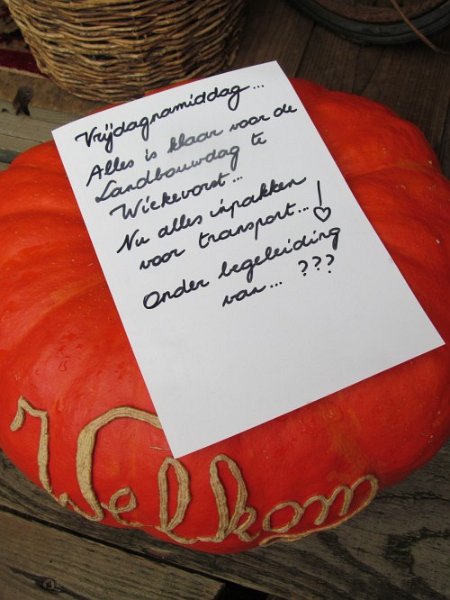 Vrijdagnamiddag...
Alles is klaar voor de
Landbouwdag te
Wiekevorst...
Nu alles inpakken
voor transport...!
Onder begeleiding
van... ???
Welkom